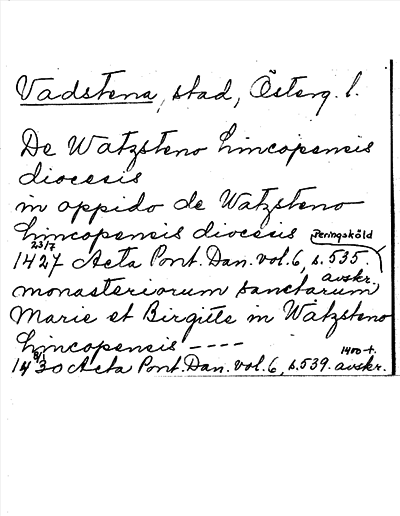 Vadstena, stad, Österg. l.
De Watzsteno lincopensis
diocesis
in oppido de Watzsteno
lincopensis diocesis Peringsköld
23/7
1427 Acta Pont. Dan. vol. 6, s. 535.
avskr.
monasteriorum sanctarum
Marie et Birgitte in Watzsteno
lincopensis ----
8/1 1400-t.
1430 Acta Pont. Dan. vol. 6, s. 539. avskr.